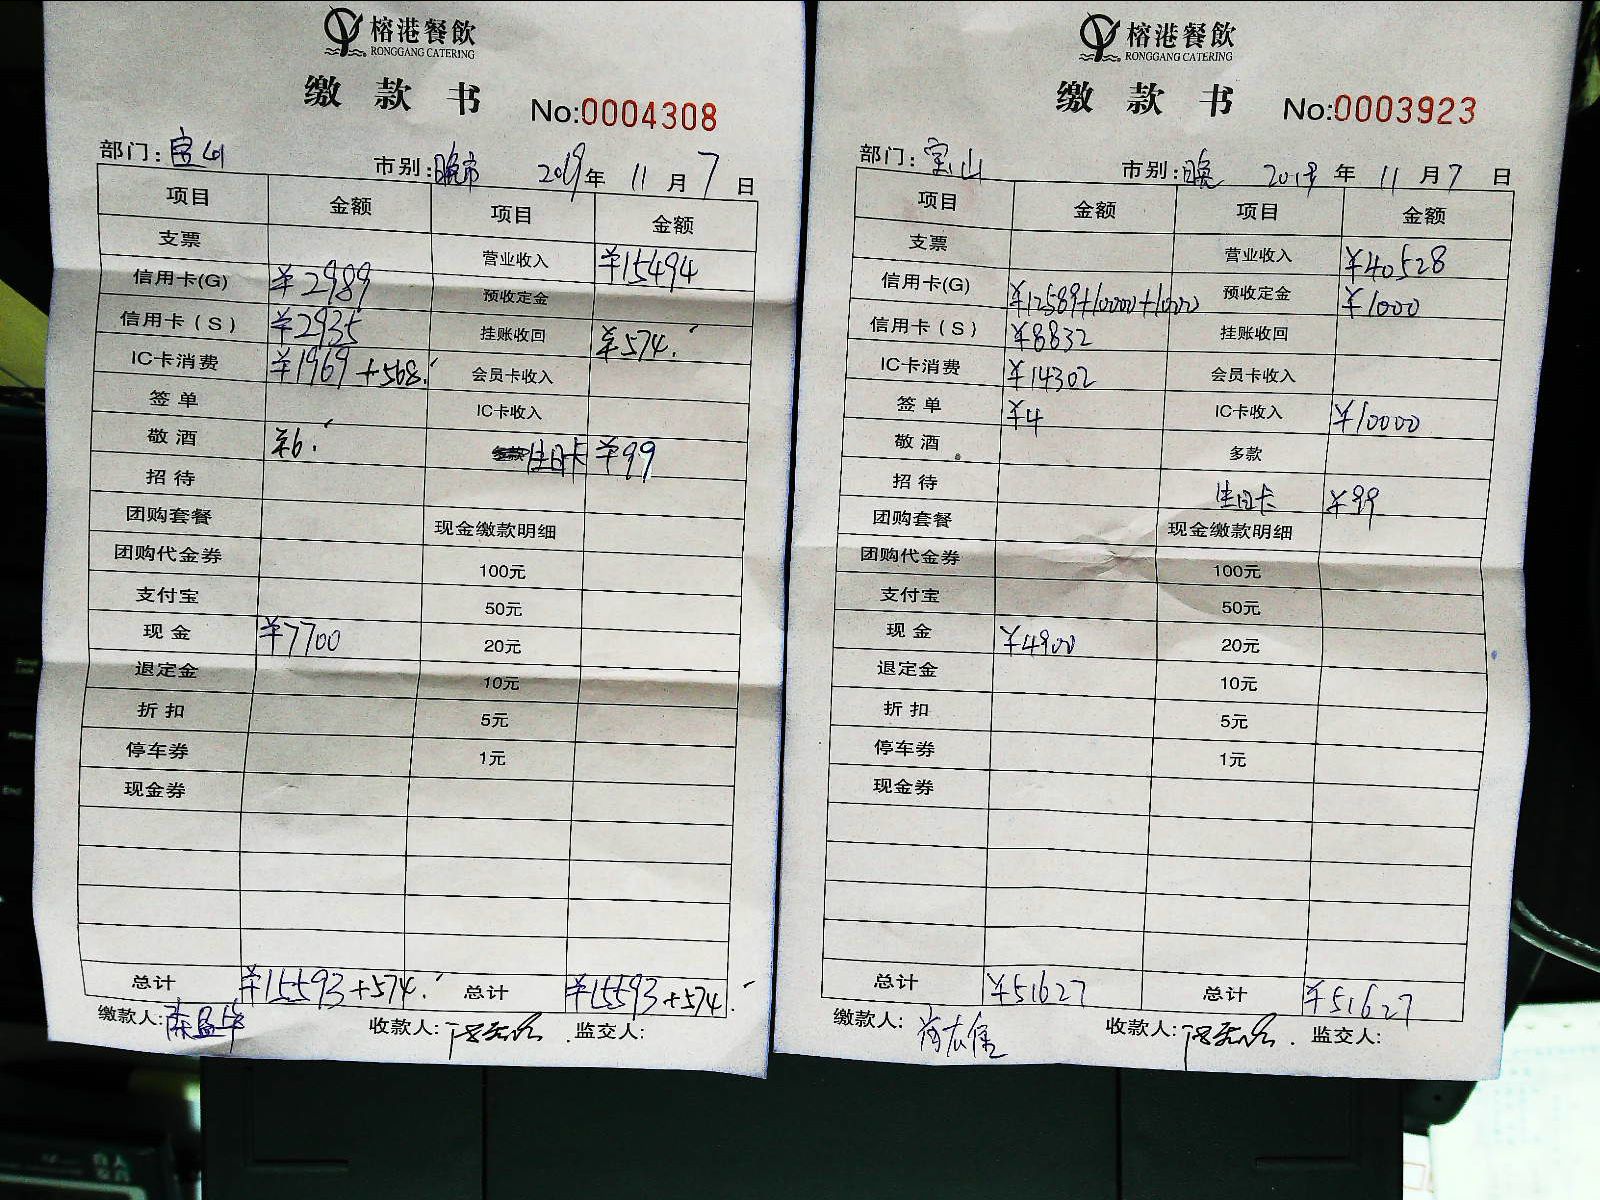 榕港餐飲
RONGGANG CATERING
缴款书 No:0004308
部门: 市别:晚市 2019年 11月 7日
项目 金额 项目 金额
支票 营业收入 ¥15494
信用卡(G) ¥2989 预收定金
信用卡（S） ¥2935 挂账收回 ¥574.
IC卡消费 ¥1969+568. 会员卡收入
签单 IC卡收入
敬酒 ¥6. 生日卡 ¥99
招待
团购套餐 现金缴款明细
团购代金券 100元
支付宝 50元
现金 ¥7700 20元
退定金 10元
折扣 5元
停车券 1元
现金券
总计 ¥15593+574. 总计 ¥15593+574.
缴款人: 收款人: 监交人:
榕港餐飲
RONGGANG CATERING
缴款书 No:0003923
部门:宝山 市别:晚 2019年 11月7日
项目 金额 项目 金额
支票 营业收入 ¥40528
信用卡(G) ¥12589+10000+1000 预收定金 ¥1000
信用卡（S） ¥8832 挂账收回
IC卡消费 ¥14302 会员卡收入
签单 ¥4 IC卡收入 ¥10000
敬酒 多款
招待 生日卡 ¥99
团购套餐 现金缴款明细
团购代金券 100元
支付宝 50元
现金 ¥4900 20元
退定金 10元
折扣 5元
停车券 1元
现金券
总计 ¥51627 总计 ¥51627
缴款人: 收款人: 监交人: